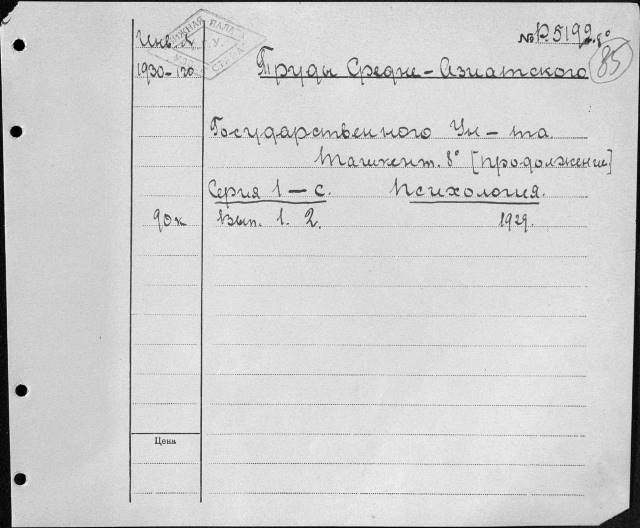 № P.5192.8°
85
КНИЖНАЯ ПАЛАТА
У.
Инв. А
1930-170
Труды Средне-Азиатского
Государственного Ун-та.
Ташкент. 8° [продолжение]
Серия 1-с. Психология.
90к Вып. 1. 2. 1929.
Цена